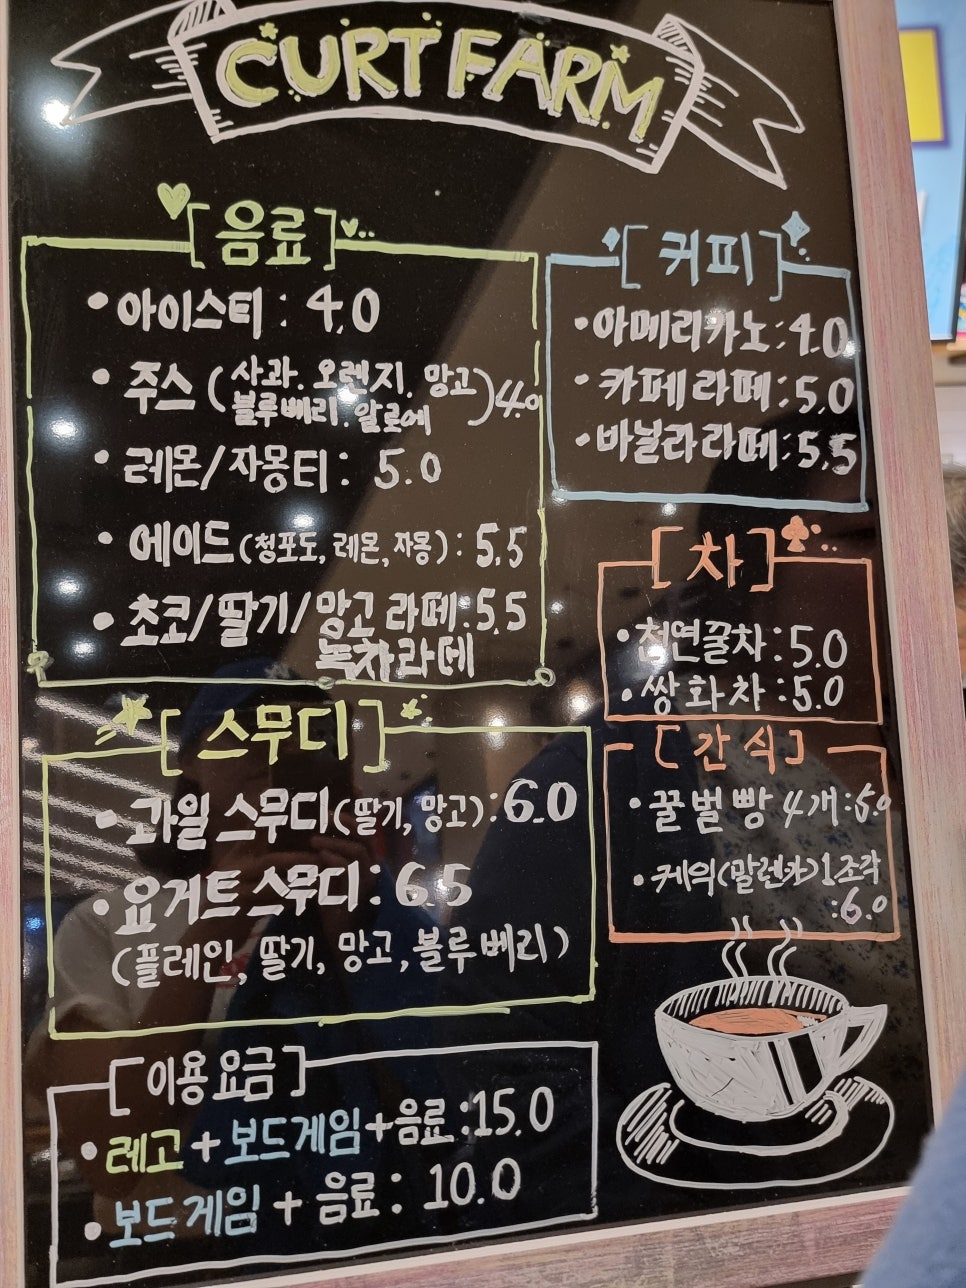 CURT FARM
[음료]
• 아이스티 : 4.0
• 주스 (사과. 오렌지. 망고
블루베리. 알로에) 4.0
• 레몬/자몽티 : 5.0
• 에이드 (청포도, 레몬, 자몽) : 5.5
• 초코/딸기/망고 라떼 : 5.5
녹차라떼
[커피]
• 아메리카노 : 4.0
• 카페라떼 : 5.0
• 바닐라라떼 : 5.5
[차]
• 천연꿀차 : 5.0
• 쌍화차 : 5.0
[스무디]
• 과일 스무디 (딸기, 망고) : 6.0
• 요거트 스무디 : 6.5
(플레인, 딸기, 망고, 블루베리)
[간식]
• 꿀벌빵 4개 : 5.0
• 케익 (말렌카) 1조각
: 6.0
[이용요금]
• 레고 + 보드게임 + 음료 : 15.0
• 보드게임 + 음료 : 10.0